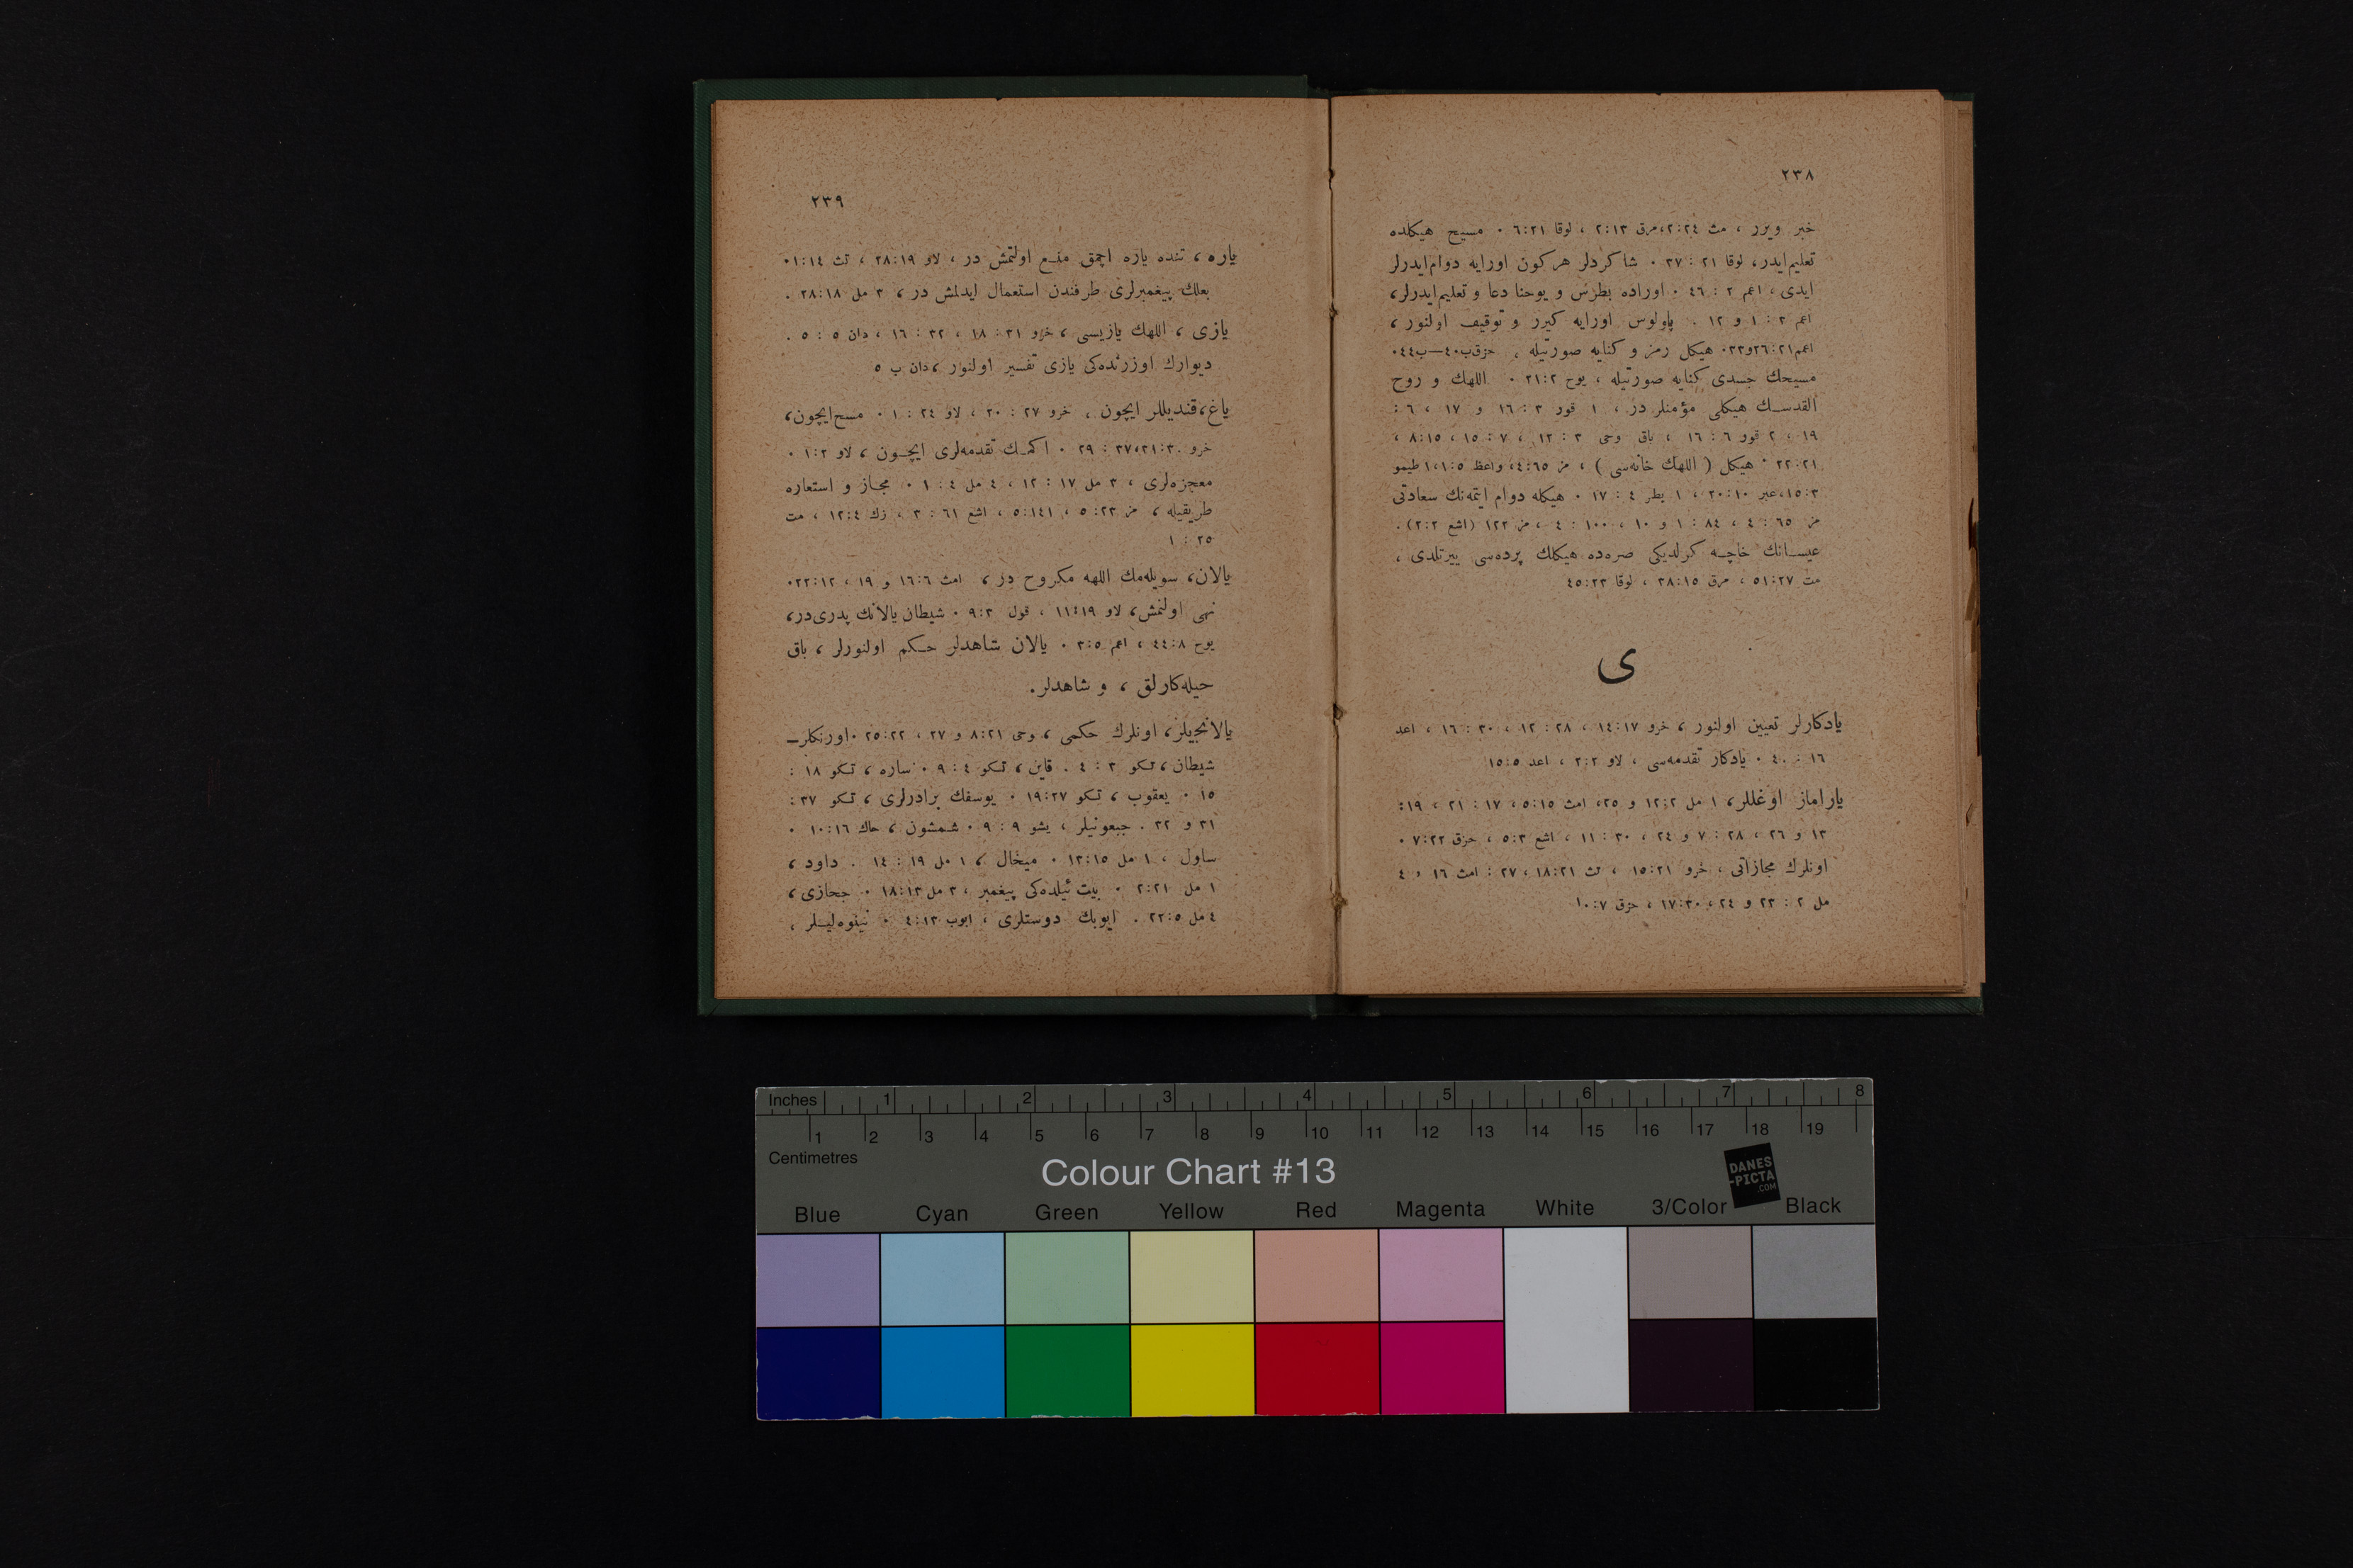 ٢٣٨
خبر ويرر ، مث ٢:٢٤، مرق ٢:١٣ ، لوقا ٦:٢١ ٠ مسيح هيكلده
تعليم ايدر، لوقا ٢١ : ٣٧ ٠ شاكردلر هركون اورايه دوام ايدرلر
ايدى ، اعم ٢ : ٤٦ ٠ اوراده بطرس و يوحنا دعا و تعليم ايدرلر،
اعم ٣ : ١ و ١٢ . پاولوس اورايه كيرر و توقيف اولنور ،
اعم ٢٦:٢١ و ٣٣٠ هيكل رمز و كنايه صورتيله ، حزق ب٤٠—ب٤٤٠
مسيحك جسدى كنايه صورتيله ، يوح ٢١:٢ ٠ اللهك و روح
القدسك هيكلى مؤمنلر در ، ١ قور ٣ : ١٦ و ١٧ ، ٦ :
١٩ ، ٢ قور ٦ : ١٦ ، باق وحى ٣ : ١٢ ، ٧ : ١٥ ، ٨:١٥ ،
٢٢:٢١ ٠ هيكل ( اللهك خانه‌سى ) ، مز ٤:٦٥، واعظ ١:٥، ١ طيمو
١٥:٣، عبر ٢٠:١٠ ، ١ بطر ٤ : ١٧ ٠ هيكله دوام ايتمه‌نك سعادتى
مز ٦٥ : ٤ ، ٨٤ : ١ و ١٠ ، ١٠٠ : ٤ ، مز ١٢٢ (اشع ٣:٢) .
عيسانك خاچه كرلديكى صره‌ده هيكلك پرده‌سى ييرتلدى ،
مت ٥١:٢٧ ، مرق ٣٨:١٥ ، لوقا ٤٥:٢٣
ى
يادكارلر تعيين اولنور ، خرو ١٤:١٧ ، ٢٨ : ١٢ ، ٣٠ : ١٦ ، اعد
١٦ : ٤٠ ٠ يادكار تقدمه‌سى ، لاو ٢:٢ ، اعد ١٥:٥
ياراماز اوغللر، ١ مل ١٢:٢ و ٢٥، امث ٥:١٥ ، ١٧ : ٢١ ، ١٩:
١٣ و ٢٦ ، ٢٨ : ٧ و ٢٤ ، ٣٠ : ١١ ، اشع ٥:٣ ، حزق ٧:٢٢ ٠
اونلرك مجازاتى ، خرو ١٥:٢١ ، تث ١٨:٢١ ، ٢٧ : امث ١٦ و ٤
مل ٢ : ٢٣ و ٢٤ ، ١٧:٣٠ ، حزق ١٠:٧
٢٣٩
ياره ، تنده ياره اچمق منع اولنمش در ، لاو ٢٨:١٩ ، تث ١:١٤٠
بعلك پيغمبرلرى طرفندن استعمال ايدلمش در ، ٣ مل ٢٨:١٨ .
يازى ، اللهك يازيسى ، خرو ٣١ : ١٨ ، ٣٢ : ١٦ ، دان ٥ : ٥ .
ديوارك اوزرنده‌كى يازى تفسير اولنور ، دان ب ٥
ياغ ، قنديللر ايچون ، خرو ٢٧ : ٢٠ ، لاو ٢٤ : ١ ٠ مسح ايچون ،
خرو ٣٠:٣١، ٣٧ : ٢٩ ٠ اكمك تقدمه‌لرى ايچون ، لاو ١:٢ ٠
معجزه‌لرى ، ٣ مل ١٧ : ١٢ ، ٤ مل ٤ : ١ ٠ مجاز و استعاره
طريقيله ، مز ٢٣:٥ ، ٥:١٤١ ، اشع ٦١ : ٣ ، زك ١٢:٤ ، مت
٢٥ : ١
يالان، سويله‌مك اللهه مكروح در ، امث ١٦:٦ و ١٩ ، ٢٢:١٢٠
نهى اولنمش، لاو ١١:١٩ ، قول ٩:٣ ٠ شيطان يالانك پدرى‌در،
يوح ٤٤:٨ ، اعم ٣:٥ ٠ يالان شاهدلر حكم اولنورلر ، باق
حيله‌كارلق ، و شاهدلر.
يالانجيلر، اونلرك حكمى ، وحى ٨:٢١ و ٢٧ ، ٢٥:٢٢ ٠ اورنكلر—
شيطان ، تكو ٣ : ٤ . قاين ، تكو ٤ : ٩ ٠ ساره ، تكو ١٨ :
١٥ ٠ يعقوب ، تكو ١٩:٢٧ ٠ يوسفك برادرلرى ، تكو ٣٧ :
٣١ و ٣٢ . جبعونيلر ، يشو ٩ : ٩ ٠ شمشون ، حاك ١٠:١٦ ٠
ساول ، ١ مل ١٣:١٥ ٠ ميخال ، ١ مل ١٩ : ١٤ . داود ،
١ مل ٢:٢١ ٠ بيت ئيلده‌كى پيغمبر ، ٣ مل ١٨:١٣ ٠ جحازى ،
٤ مل ٢٢:٥ . ايوبك دوستلرى ، ايوب ٤:١٣ ٠ نينوه‌ليلر ،
Inches 1 2 3 4 5 6 7 8
1 2 3 4 5 6 7 8 9 10 11 12 13 14 15 16 17 18 19
Centimetres
Colour Chart #13
DANES
-PICTA
.COM
Blue Cyan Green Yellow Red Magenta White 3/Color Black